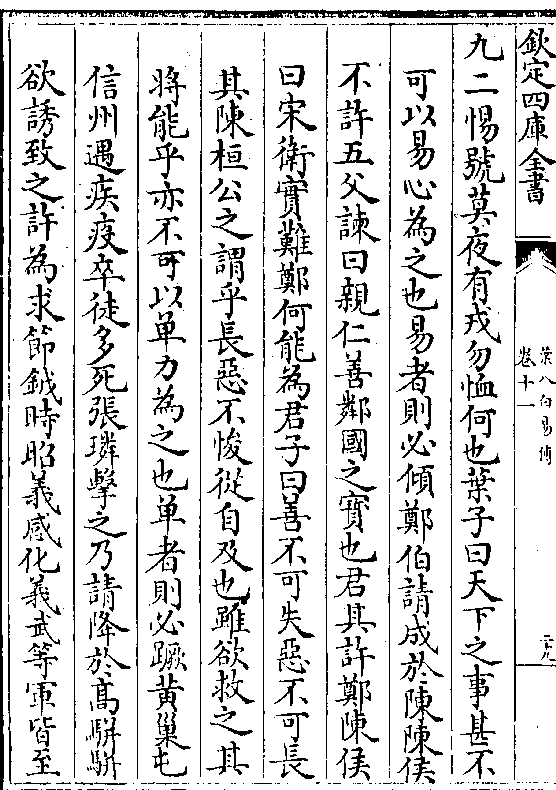 欽定四庫全書
葉八白易傳
卷十一
二十九
九二惕號莫夜有戎勿恤何也葉子曰天下之事甚不
可以易心為之也易者則必傾鄭伯請成於陳陳侯
不許五父諫曰親仁善鄰國之寶也君其許鄭陳侯
曰宋衛實難鄭何能為君子曰善不可失惡不可長
其陳桓公之謂乎長惡不悛從自及也雖欲救之其
將能乎亦不可以单力為之也单者則必蹶黄巢屯
信州遇疾疫卒徒多死張璘擊之乃請降於高駢駢
欲誘致之許為求節鉞時昭義感化義武等軍皆至